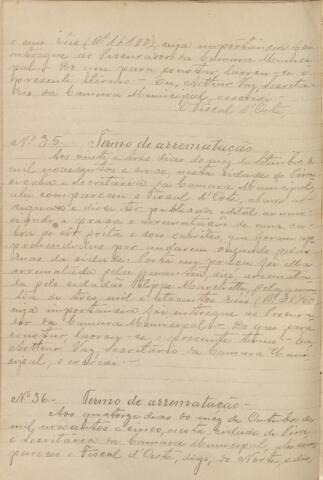 e cem réis (Rs 1$100), cuja importancia foi
entregue ao Procurador da Camara Munici-
pal. — Do que para constar, lavrou-se o
presente termo. — Eu, Arthur Vaz, secreta-
rio da Camara Municipal, escrevi. —
O Fiscal d'Oeste,
Nº 35. — Termo de arrematação
Aos vinte e tres dias do mez de Setembro de
mil novecentos e cinco, nesta cidade de Pira-
cicaba e secretaria da Camara Municipal,
ahi compareceu o Fiscal d'Oeste,
e disse ter publicado edital
a praça e arrematação de uma ca-
bra de côr preta e dois cabritos que foram ap-
prehendidos por andarem soltos pelas
ruas da cidade.
arrematado pela quantia, digo, arremata-
da pelo cidadão Felippe
tia de tres mil e setecentos réis (Rs 3$700)
cuja importancia foi entregue ao Procura-
dor da Camara Municipal. — Do que para
constar, lavrou-se o presente termo. — Eu,
Arthur Vaz, secretario da Camara Muni-
cipal, o escrevi. —
Nº 36. — Termo de arrematação. —
Aos quatorze dias do mez de Outubro de
mil novecentos e cinco, nesta cidade de Pira-
e secretaria da Camara Municipal, ahi com-
pareceu o Fiscal d'Oeste, digo, do Norte, e dis-